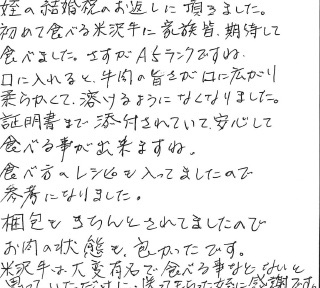 姪の結婚祝のお返しに頂きました。
初めて食べる米沢牛に家族皆、期待して
食べました。さすがA5ランクですね。
口に入れると、牛肉の旨さが口に広がり
柔らかくて、溶けるようになくなりました。
証明書まで添付されていて、安心して
食べる事が出来ますね。
食べ方のレシピも入ってましたので
参考になりました。
梱包もきちんとされてましたので
お肉の状態も、良かったです。
米沢牛は大変有名で食べる事などないと
思っていただけに、送ってもらった姪に感謝です。